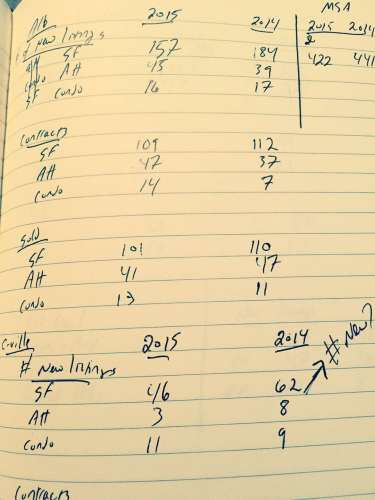 Alb 2015 2014 MSA
# New listings 2015 2014
SF 157 184 422 441
AH 45 39
SF Condo 16 17
Contracts
SF 109 112
AH 47 37
Condo 14 7
Sold
SF 101 110
AH 41 47
Condo 13 11
Cville 2015 2014 # New?
# New listings
SF 46 62
AH 3 8
Condo 11 9
Contracts